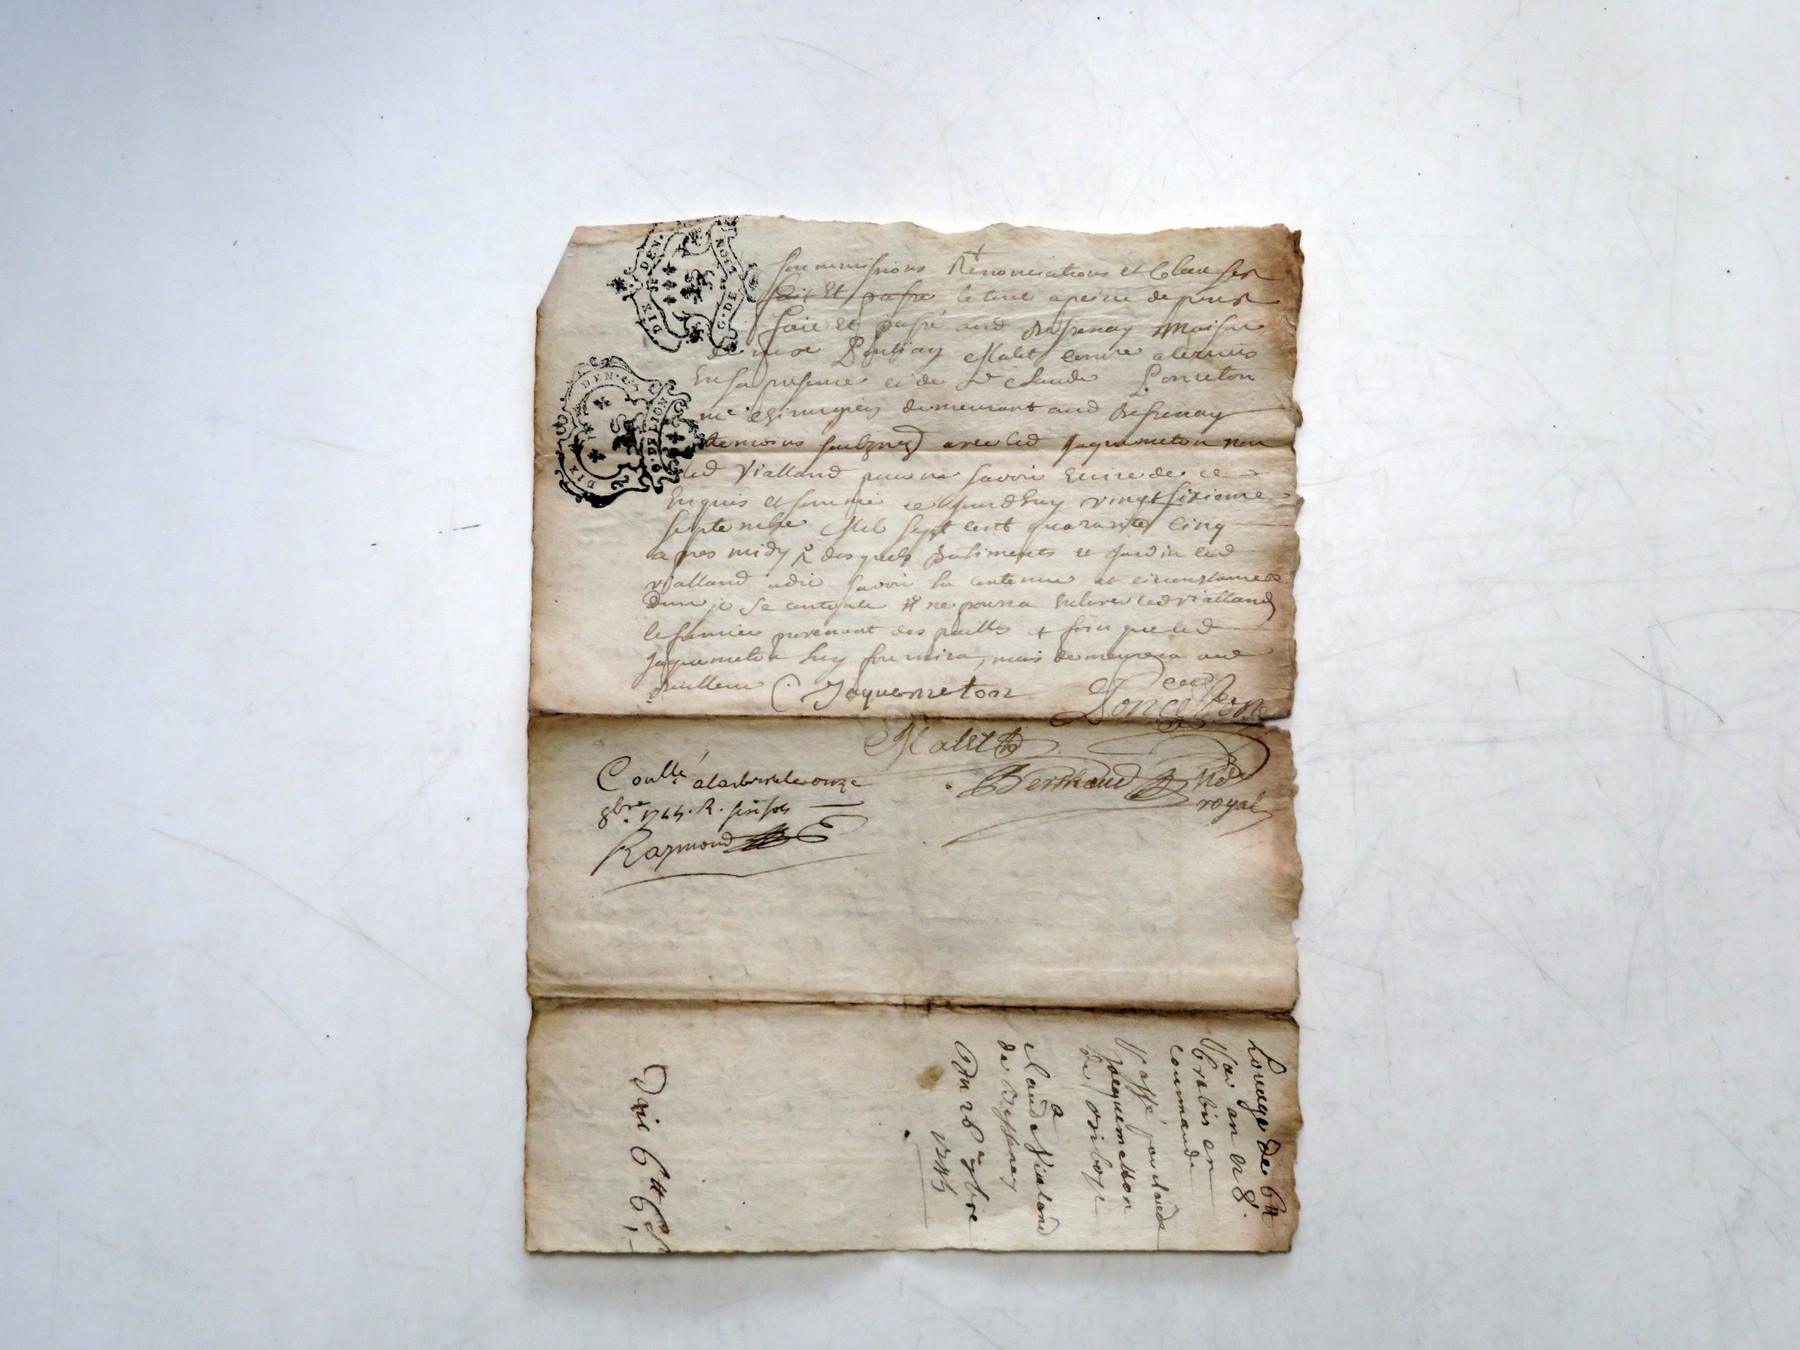 DIX DEN. G. DE LION
DIX DEN. G. DE LION
soummissions Renonciations et Clauses
fait et passé le tout a peine de
faie et passé aud Bessenay Maison
de Malet comme
En sa presence et de Sr Claude Ponceton
me chirurgien demeurant aud Bessenay
temoins soubznes avec led Jaquemeton non
led Vialland pour ne savoir Ecrire de ce
Enquis et sommé ce jourdhuy vingt sixieme
septembre Mil sept cent quarante cinq
apres midy desquels Batiments et Jardin led
Vialland a dit savoir la contenue et circonstances
Dont je se contente ne pourra Enlever led Vialland
le fumier provenant des pailles & foin que led
Jaquemeton luy fournira, mais demeurera
Jaquemeton Ponceton
Malet
Berthaud Nre
royal
Conllé alarbresle onze
8bre 1745. R. six sols
Raymond
Louage de 6tt
Par an et 8.
brebis en
commande
Passé par claude
Jacquemetton
de
a
claude Vialand
de Bessenay
Du 26e 7bre
1745